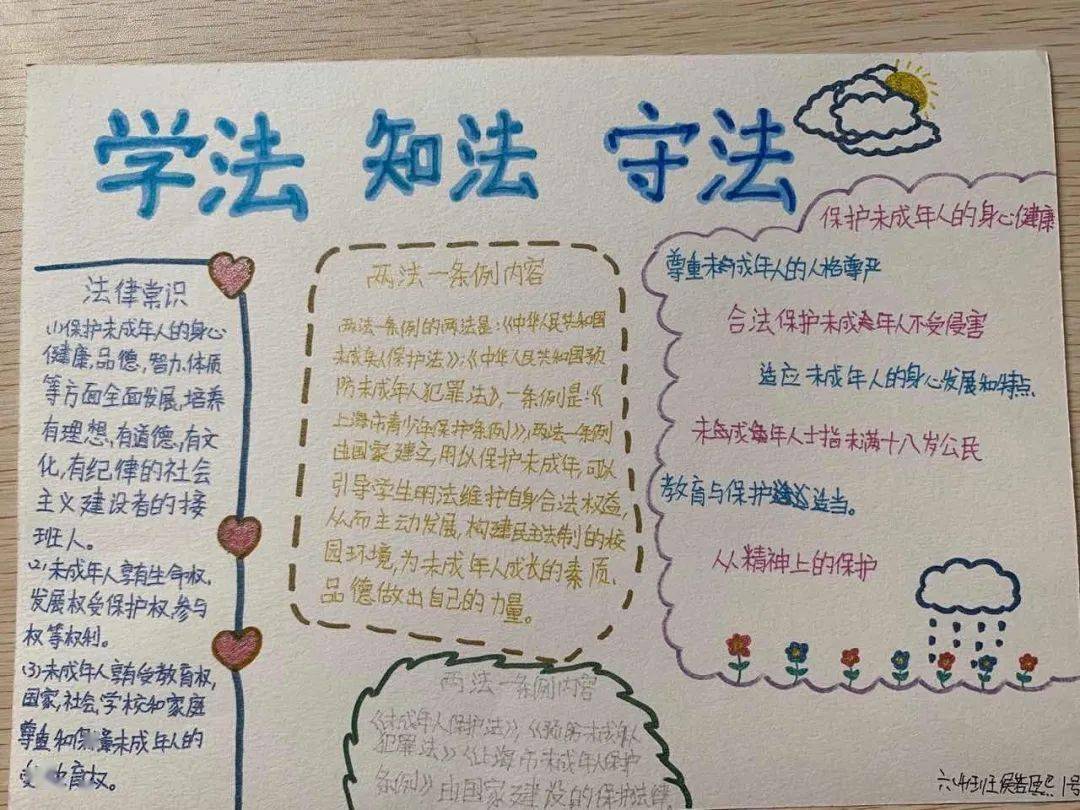 学法 知法 守法
法律常识
(1)保护未成年人的身心
健康,品德,智力,体质
等方面全面发展,培养
有理想,有道德,有文
化,有纪律的社会
主义建设者的接
班人。
(2)未成年人享有生命权,
发展权受保护权,参与
权等权利。
(3)未成年人享有受教育权,
国家,社会,学校和家庭
尊重和保 未成年人的
育权。
两法一条例内容
两法一条例的两法是:《中华人民共和国
未成年人保护法》;《中华人民共和国预
防未成年人犯罪法》,一条例是:《
上海市青少年保护条例》;两法一条例
由国家建立,用以保护未成年,可以
引导学生明法维护自身合法权益,
从而主动发展,构建民主法制的校
园环境,为未成年人成长的素质、
品德做出自己的力量。
两法一条例内容
《未成年人保护法》,《预防未成年人
犯罪法》《上海市未成年人保护
条例》由国家建设的保护法律
保护未成年人的身心健康
尊重未成年人的人格尊严
合法保护未成年人不受侵害
适应未成年人的身心发展和特点
未成年人士指未满十八岁公民
教育与保护 适当。
从精神上的保护
1号